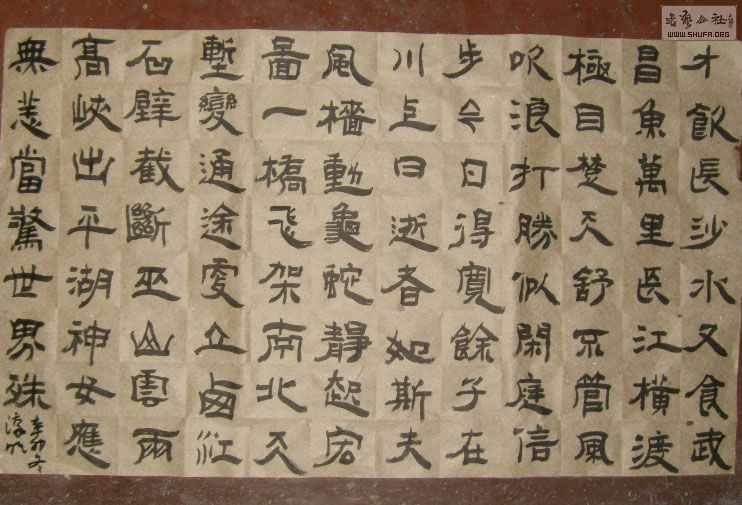 才飲長沙水又食武
昌魚萬里長江橫渡
極目楚天舒不管風
吹浪打勝似閑庭信
步今日得寬餘子在
川上曰逝者如斯夫
風檣動龜蛇靜起宏
圖一橋飛架南北天
塹變通途更立西江
石壁截斷巫山雲雨
高峽出平湖神女應
無恙當驚世界殊
辛卯冬
書藝公社
WWW.SHUFA.ORG